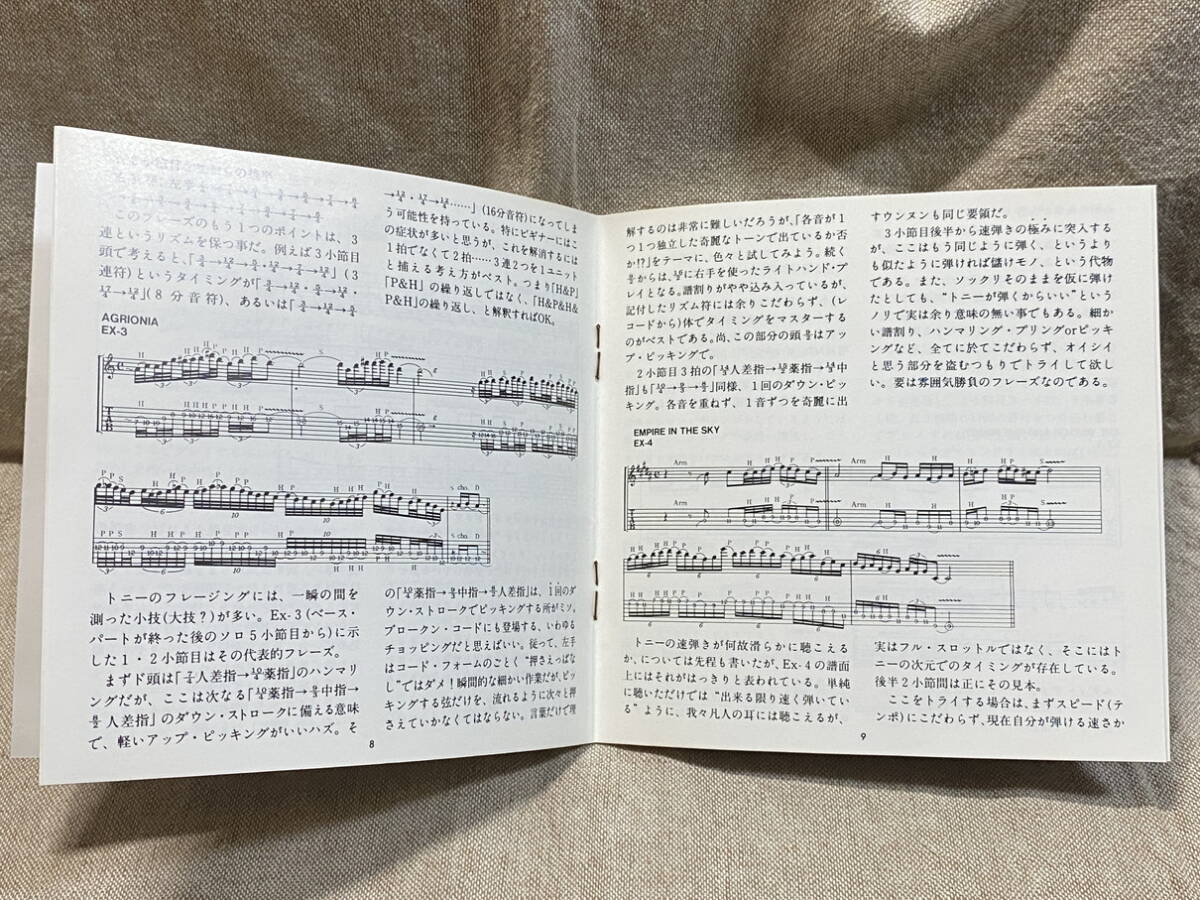 このフレーズのもう1つのポイントは、3
連というリズムを保つ事だ。例えば3小節目
頭で考えると、
(3
連符)というタイミングが
(8分音符)、あるいは
(16分音符)になってしま
う可能性を持っている。特にビギナーにはこ
の症状が多いと思うが、これを解消するには
1拍でなくて2拍……3連2つを1ユニット
と捕える考え方がベスト。つまり「H&P」
「P&H」の繰り返しではなく、「H&P&H&
P&H」の繰り返し、と解釈すればOK。
AGRIONIA
EX-3
トニーのフレージングには、一瞬の間を
測った小技(大技?)が多い。Ex-3(ベース・
パートが終った後のソロ5小節目から)に示
した1・2小節目はその代表的フレーズ。
まずド頭は「人差指→薬指」のハンマリ
ングだが、ここは次なる「薬指→中指→
人差指」のダウン・ストロークに備える意味
で、軽いアップ・ピッキングがいいハズ。そ
の「薬指→中指→人差指」は、1回のダ
ウン・ストロークでピッキングする所がミソ。
ブロークン・コードにも登場する、いわゆる
チョッピングだと思えばいい。従って、左手
はコード・フォームのごとく“押さえっぱな
し”ではダメ!瞬間的な細かい作業だが、ピッ
キングする弦だけを、流れるように次々と押
さえていかなくてはならない。言葉だけで理
8
解するのは非常に難しいだろうが、「各音が1
つ1つ独立した奇麗なトーンで出ているか否
か!?」をテーマに、色々と試してみよう。続く
からは、に右手を使ったライトハンド・プ
レイとなる。譜割りがやや込み入っているが、
記付したリズム符には余りこだわらず、(レ
コードから)体でタイミングをマスターする
のがベストである。尚、この部分の頭はアッ
プ・ピッキングで。
2小節目3拍の「人差指→薬指→中
指」も「」同様、1回のダウン・ピッ
キング。各音を重ねず、1音ずつを奇麗に出
すウンヌンも同じ要領だ。
3小節目後半から速弾きの極みに突入する
が、ここはもう同じように弾く、というより
も似たように弾ければ儲けモノ、という代物
である。また、ソックリそのままを仮に弾け
たとしても、“トニーが弾くからいい”という
ノリで実は余り意味の無い事でもある。細か
い譜割り、ハンマリング・プリングorピッキ
ングなど、全てに於てこだわらず、オイシイ
と思う部分を盗むつもりでトライして欲し
い。要は雰囲気勝負のフレーズなのである。
EMPIRE IN THE SKY
EX-4
トニーの速弾きが何故滑らかに聴こえる
か、については先程も書いたが、Ex-4の譜面
上にはそれがはっきりと表われている。単純
に聴いただけでは“出来る限り速く弾いてい
る”ように、我々凡人の耳には聴こえるが、
実はフル・スロットルではなく、そこにはト
ニーの次元でのタイミングが存在している。
後半2小節間は正にその見本。
ここをトライする場合は、まずスピード(テ
ンポ)にこだわらず、現在自分が弾ける速さか
9